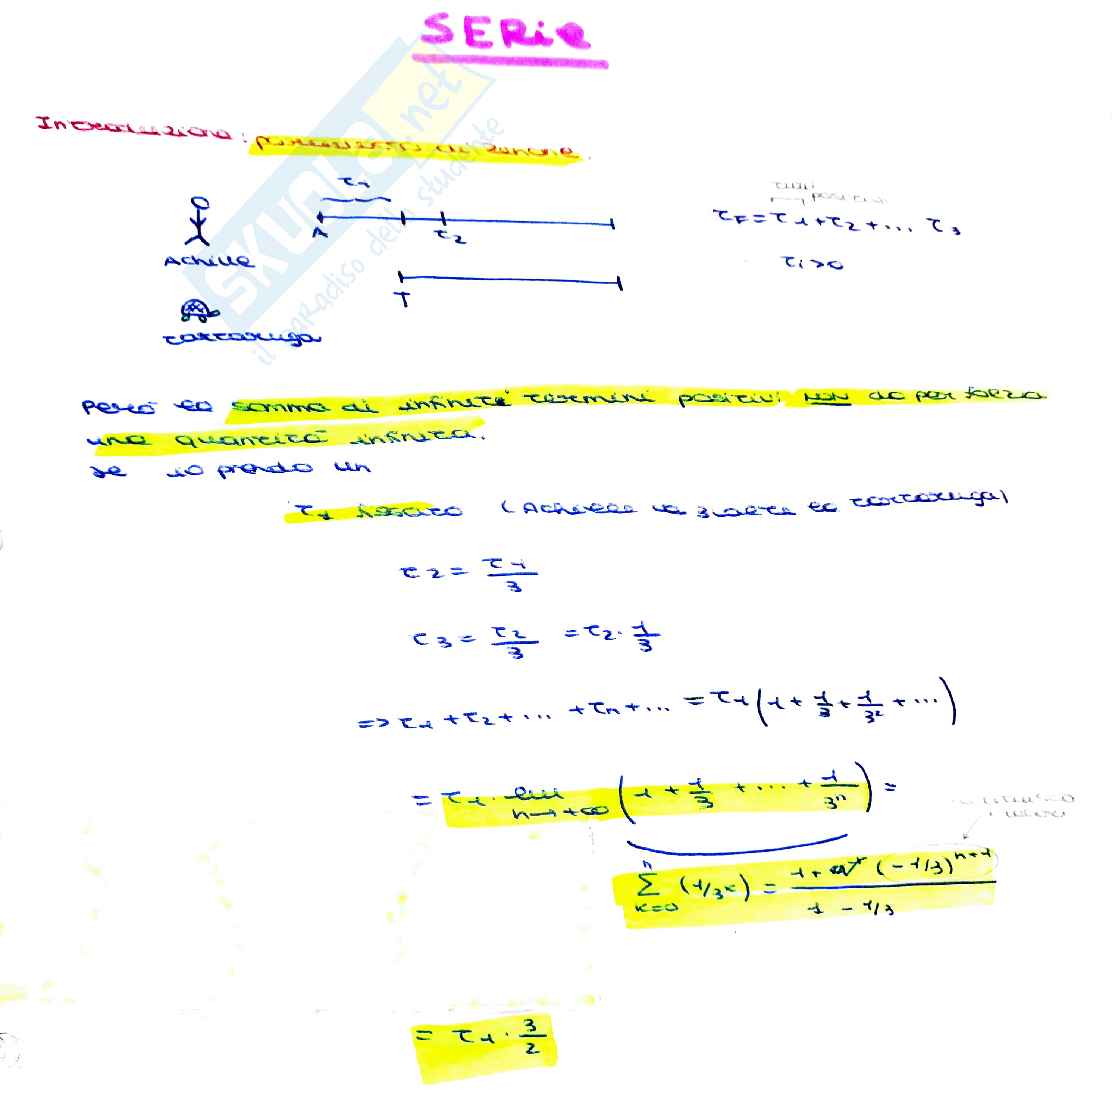 SERIE
Introduzione: paradosso di Zenone.
τ1
tutti positivi
A τ2
τF = τ1 + τ2 + ... τ3
Achille
τi > 0
T
tartaruga
SKUOLA.net
il paradiso dello studente
Però la somma di infiniti termini positivi NON dà per forza
una quantità infinita.
se io prendo un
τ1 fissato (Achille va 3 volte la tartaruga)
τ2 = τ1/3
τ3 = τ2/3 = τ2 · 1/3
=> τ1 + τ2 + ... + τn + ... = τ1 (1 + 1/3 + 1/3² + ...)
= τ1 · lim n→+∞ (1 + 1/3 + ... + 1/3ⁿ) =
n Σ k=0 (1/3ᵏ) = 1 + (-1/3)ⁿ⁺¹ / 1 - 1/3
= τ1 · 3/2